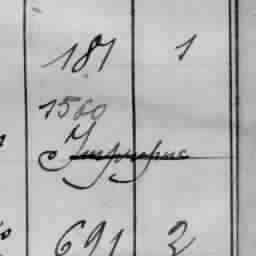 181 1
1560
691 2